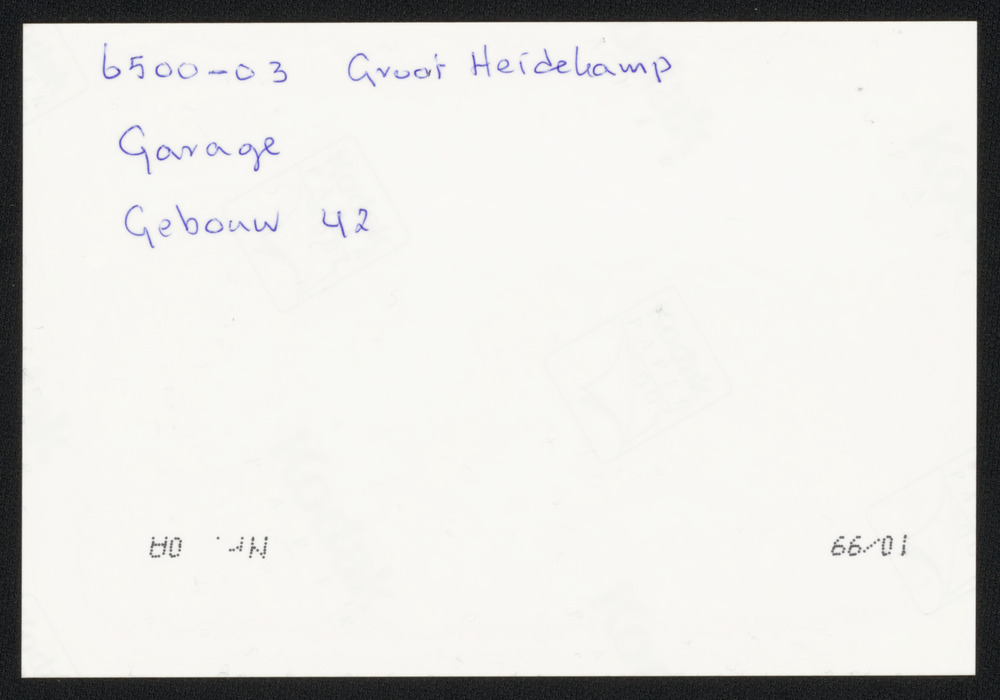 6500-03 Groot Heidekamp
Garage
Gebouw 42
10/99 Nr. 0A